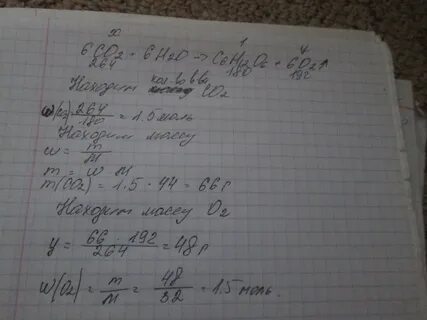 x 1 4
6CO2 + 6H2O → C6H12O6 + 6O2↑
264 180 192
Находим кол-во в-ва CO2
w(CO2) 264/180 = 1.5 моль
Находим массу
w = m/M
m = w M
m(CO2) = 1.5 · 44 = 66 г
Находим массу O2
y = 66 · 192/264 = 48 г
w(O2) = m/M = 48/32 = 1.5 моль.